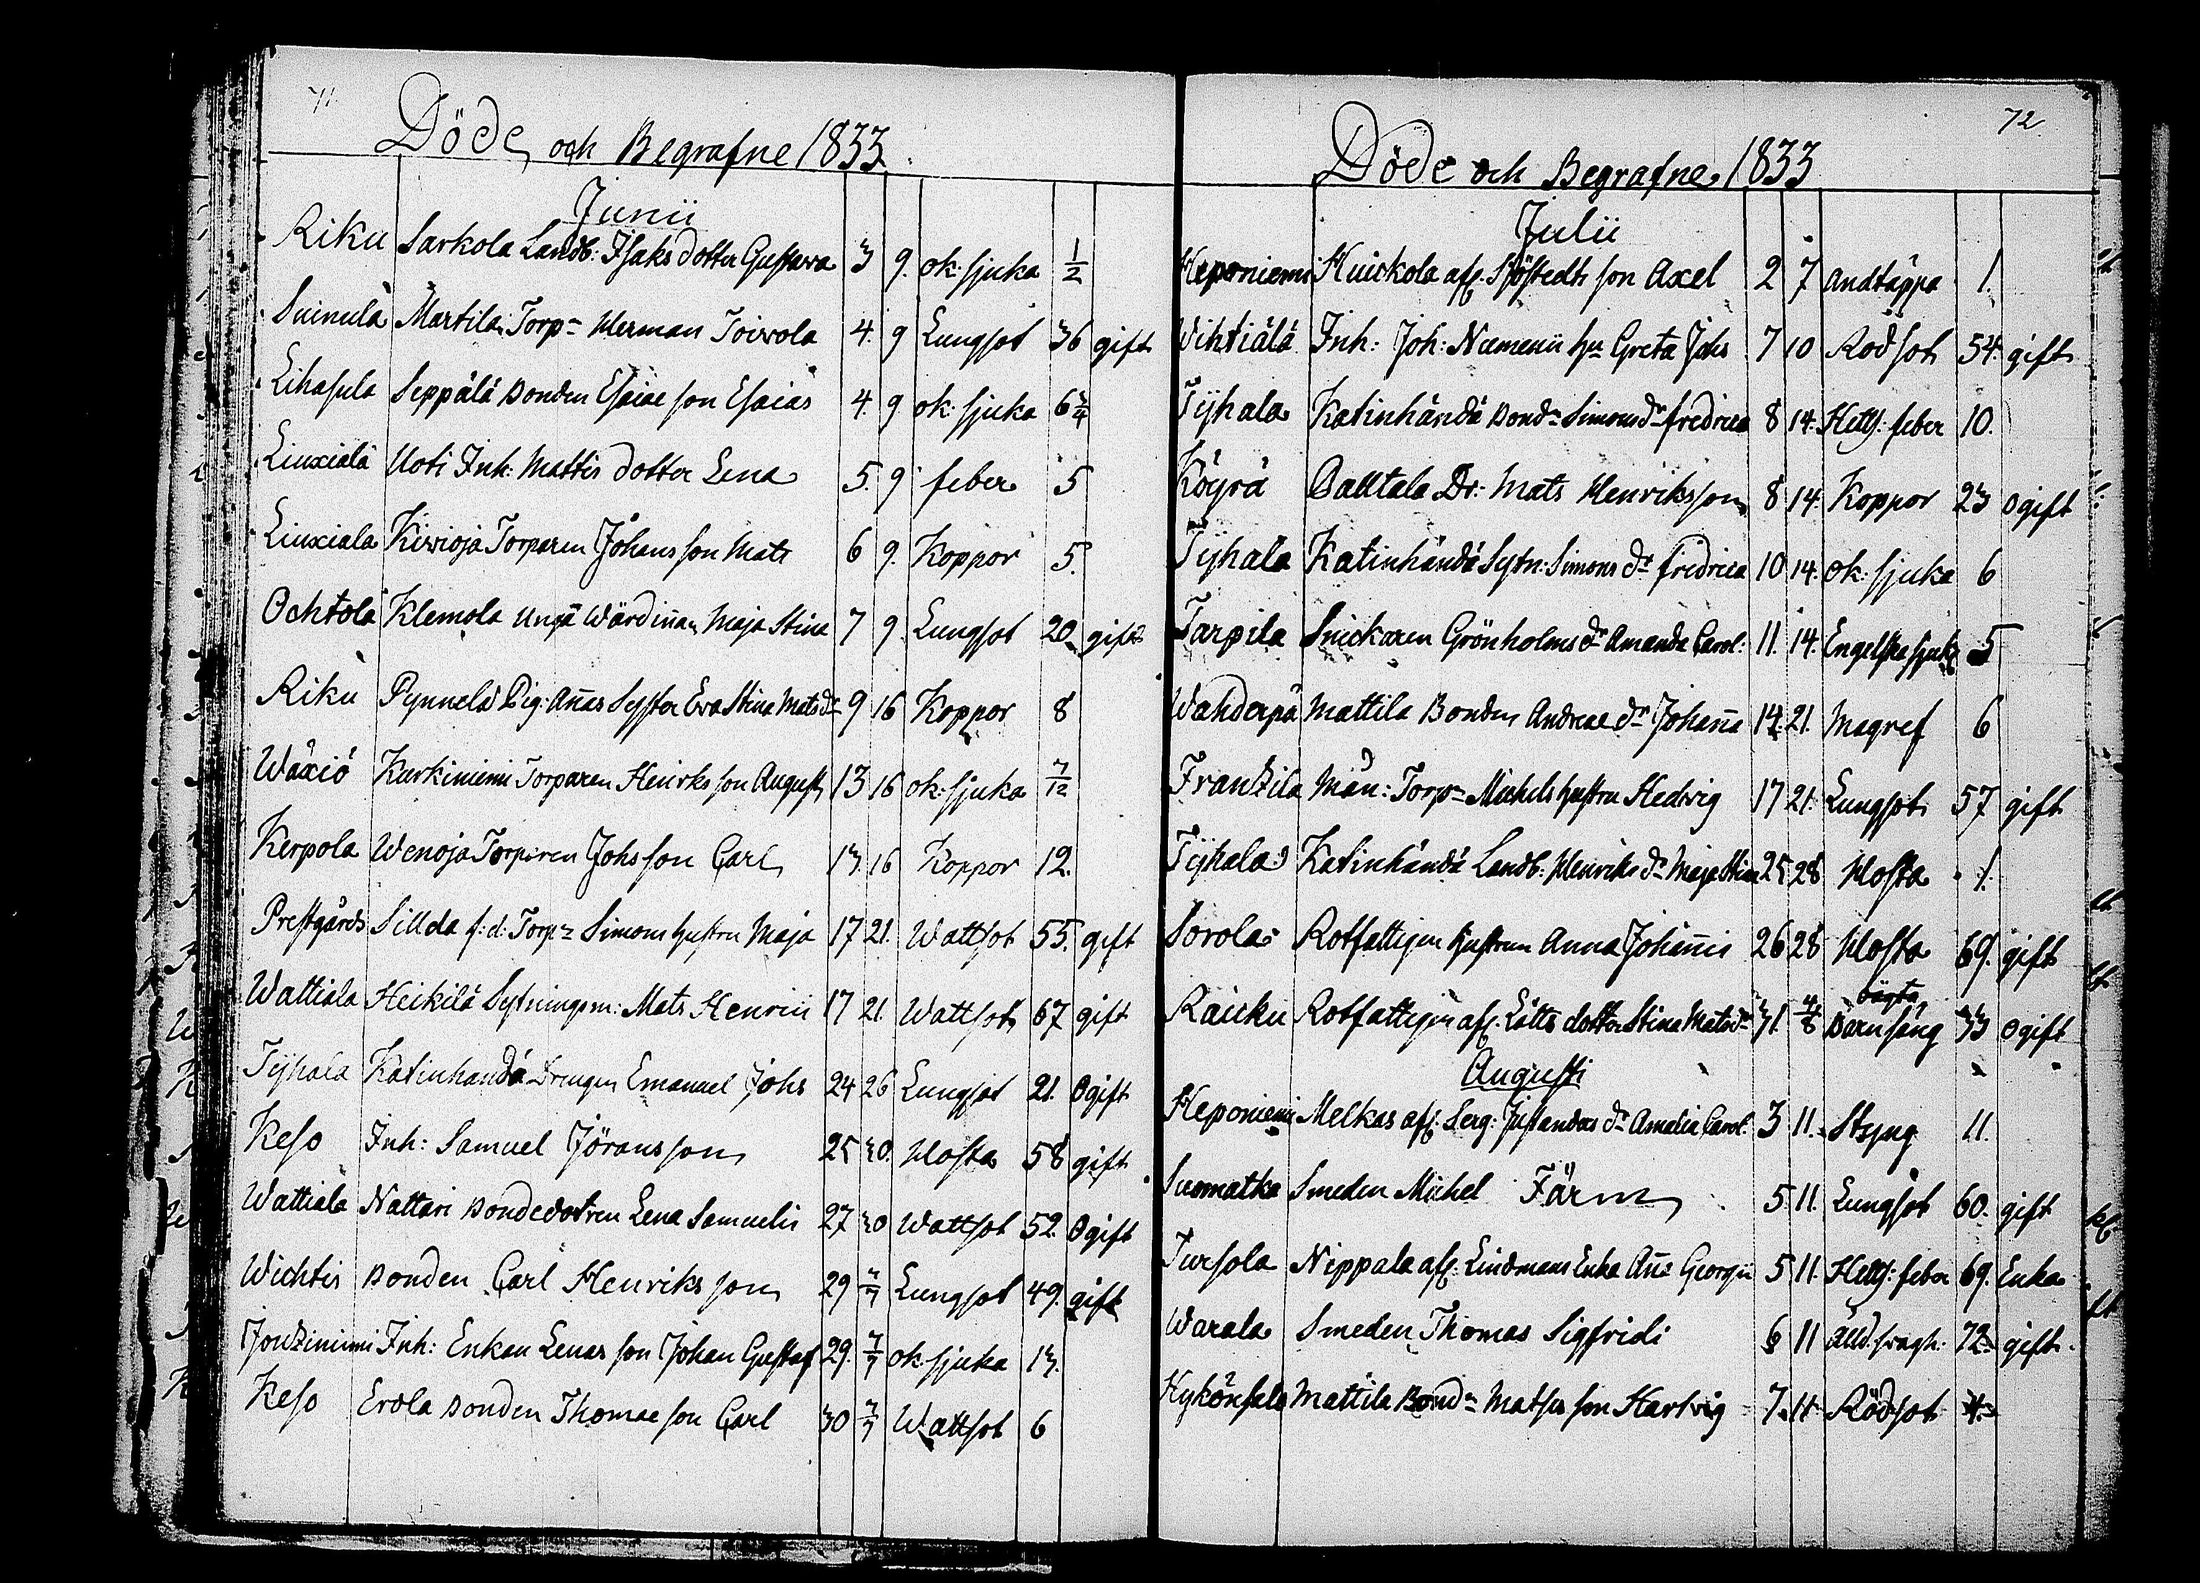 71.
Döde och Begrafne 1833.
Junii
Riku Sarkola Landb: Isaks dotter Gustawa 3 9. ok: sjuka 1/2
Suinula Martila Torp:n Herman Toivola 4. 9 Lungsot 36 gift
Lihasula Seppälä Bonden Esaiae son Esaias 4. 9 ok: sjuka 6 3/4
Liuxiala Uoti Inh: Mattis dotter Lena 5. 9 feber 5
Liuxiala Kirrioja Torparen Johans son Mats 6 9. Koppor 5.
Ochtola Klemola Unga Wärdinnan Maja Stina 7 9. Lungsot 20. gift
Riku Pynnelä Pig: Annas Syster Eva Stina Matsdr 9 16 Koppor 8
Wäxiö Kurkiniemi Torparen Henriks son August 13 16 ok: sjuka 7/12
Kerpola Wenoja Torparen Johs son Carl 13. 16 Koppor 12.
Prestgårds Sillda f: d: Torp:n Simons hustru Maja 17 21. Wattsot 55. gift
Wattiala Heikilä Sytningsm: Mats Henrici 17 21. Wattsot 67 gift
Tyhala Katinhändä Drengen Emanuel Johs 24 26 Lungsot 21. Ogift
Keso Inh: Samuel Jöransson 25 30. Hosta 58 gift
Wattiala Nattari Bondedottren Lena Samuelis 27 30 Wattsot 52. Ogift
Wichtis Bonden Carl Henriksson 29 7/7 Lungsot 49. gift
Joutziniemi Inh: Enkan Lenas son Johan Gustaf 29. 7/7 ok sjuka 13.
Keso Erola Bonden Thomae son Carl 30 7/7 Wattsot 6
72.
Döde och Begrafne 1833
Julii
Heponiemi Huickola afs. Sjöstedts son Axel 2 7 Andtäppa 1.
Wihtiälä Inh: Joh: Niemenii hu Greta Johs 7 10 Rödsot 54. gift
Tyhala Katinhändä Bond:n Simons dr fredrica 8 14. Hetts: feber 10.
Köyrä Paltala Dr: Mats Henriksson 8 14. Koppor 23 ogift
Tyhala Katinhändä Sytn: Simons dr fredrica 10 14. ok: sjuka 6
Tarpila Snickaren Grönholms dr Amanda Carol: 11. 14. Engelska sjuka 5
Wahderpä Mattila Bonden Andreae dr Johanna 14. 21. Magref 6
Frantzila Män: Torp:n Michels hustru Hedvig 17 21. Lungsot 57 gift
Tyhala Katinhändä Landb: Henriks dr Maja Stina 25 28 Hosta 1.
Sorola Rotfattigen hustrun Anna Johannis 26 28 Hosta 69. gift
Raicku Rotfattigen afs. Lätts dotter Stina Matsdr 31. 4/8 oägta Barnsäng 33 ogift
Augusti
Heponiemi Melkas afs. Serg: Justanders dr Amalia Carol. 3 11. Styng 11.
Suomatka Smeden Michel Färm 5 11. Lungsot 60. gift
Tursola Nippala afs. Lindmans Enka Ann Georgii 5 11. Hetts: feber 69. Enka
Warala Smeden Thomas Sigfridi 6 11 Ålld. svagh: 72 gift.
Kykönsalo Mattila Bond:n Mats son Hartvig 7. 11 Rödsot 4.